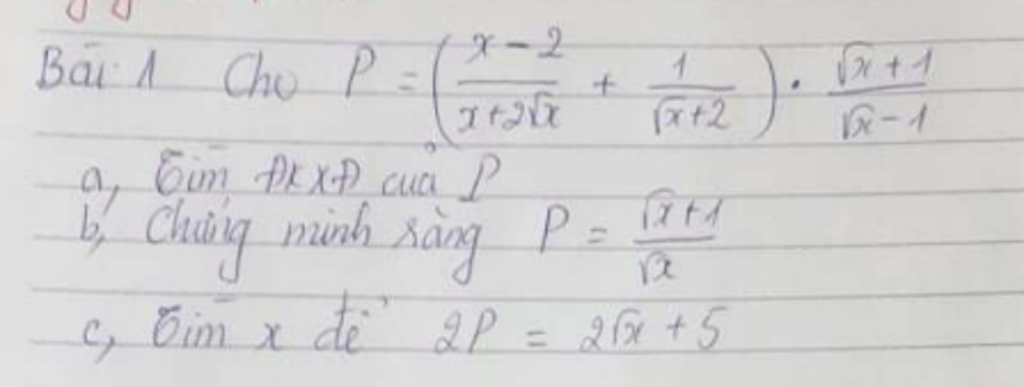 Bài 1 Cho P = ( (x - 2)/(x + 2√x) + 1/(√x + 2) ) · (√x + 1)/(√x - 1)
a, Tìm ĐKXĐ của P
b, Chứng minh rằng P = (√x + 1)/√x
c, Tìm x để 2P = 2√x + 5